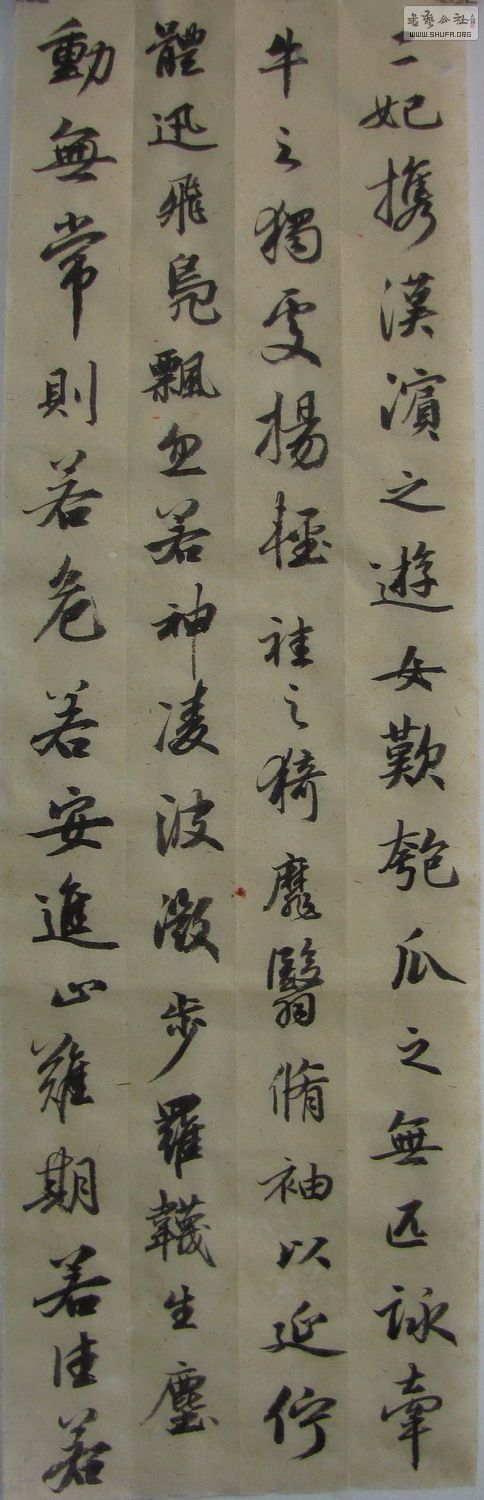 二妃攜漢濱之遊女歎匏瓜之無匹詠牽
牛之獨處揚輕袿之猗靡翳脩袖以延佇
體迅飛鳧飄忽若神凌波微步羅韈生塵
動無常則若危若安進止難期若往若
書藝公社
WWW.SHUFA.ORG